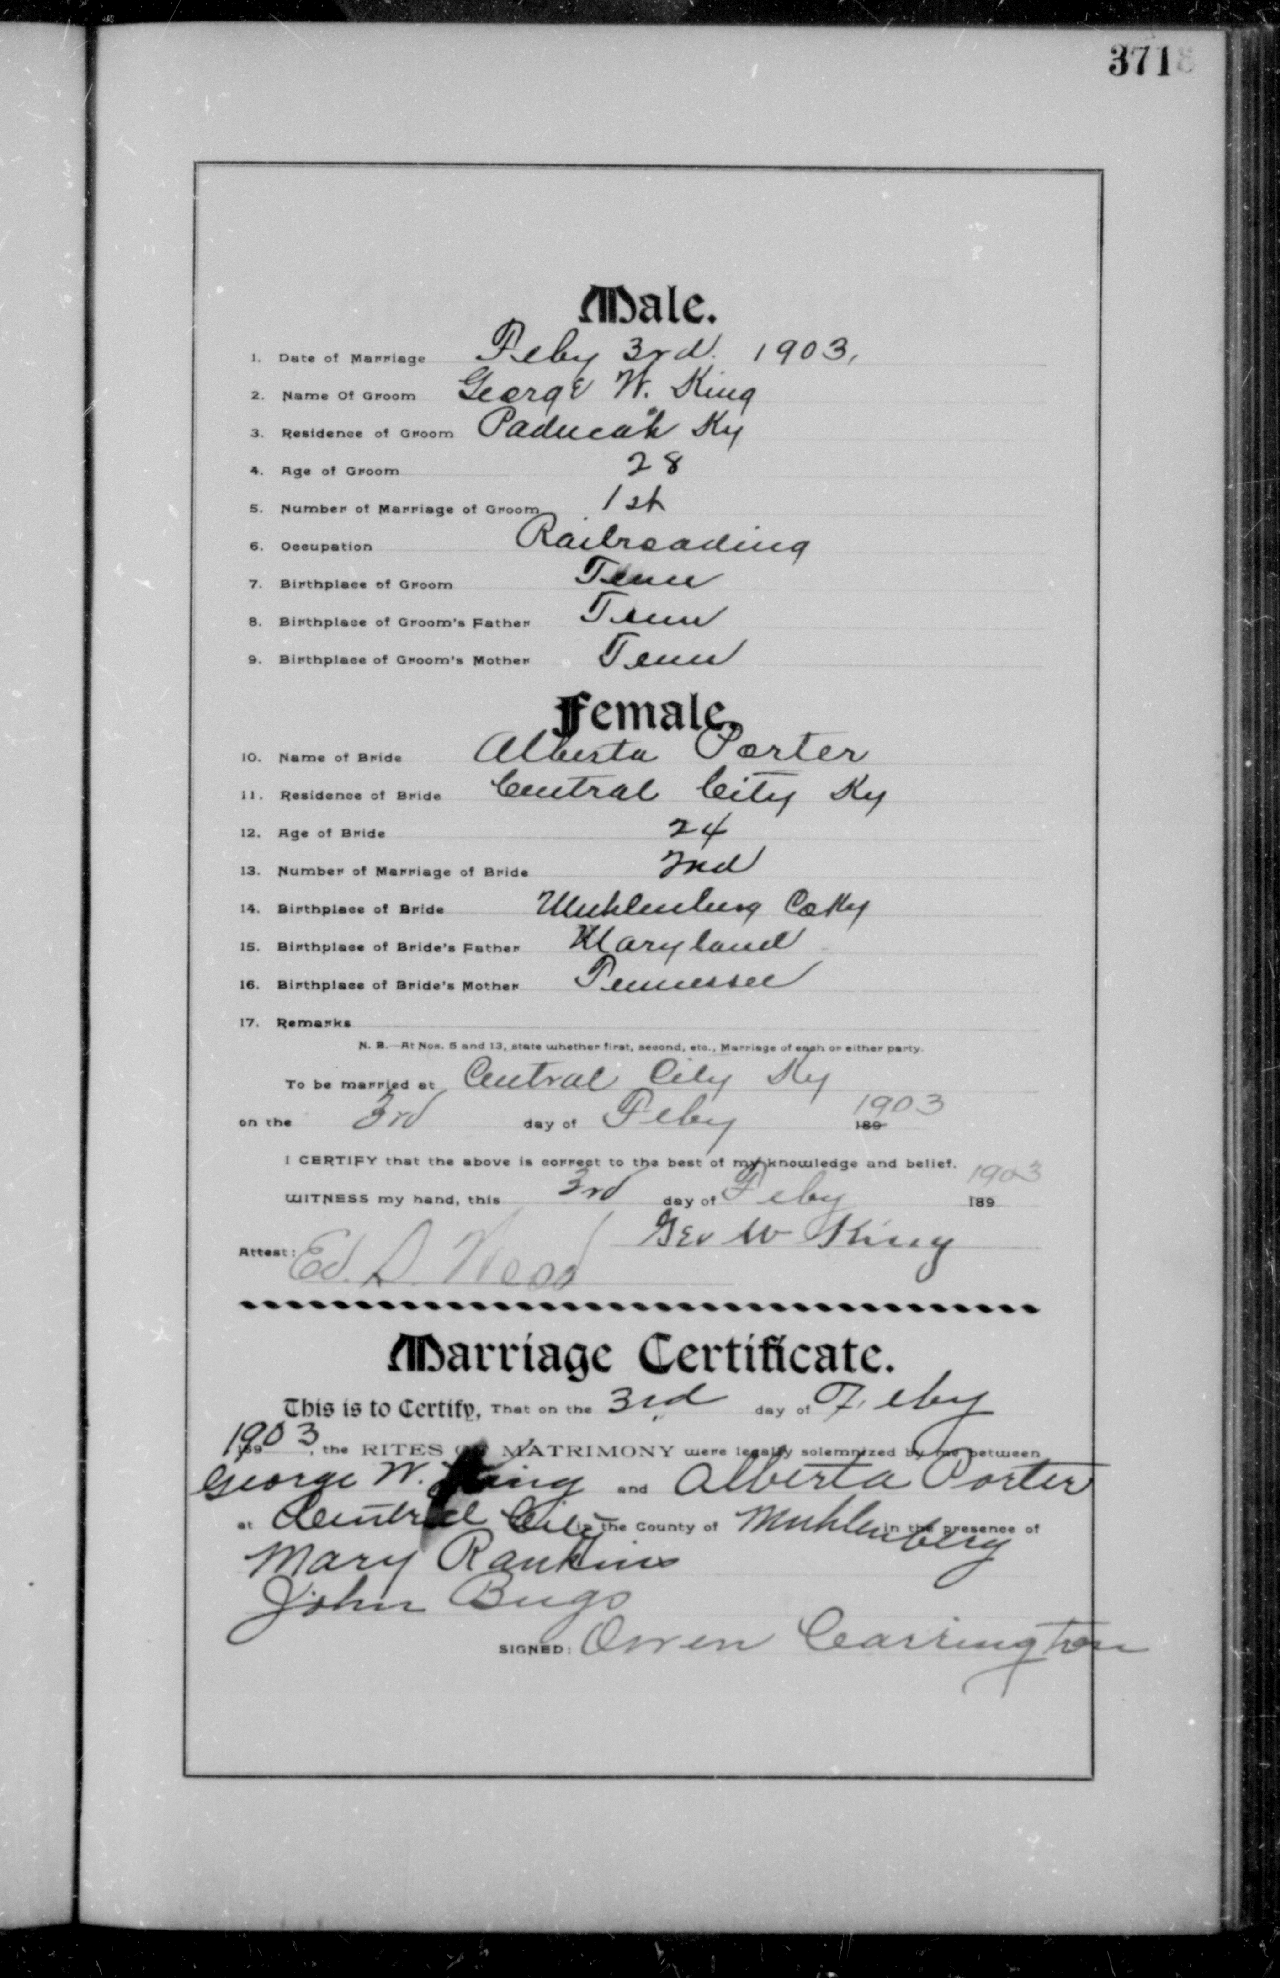 371
Male.
1. Date of Marriage Feby 3rd. 1903,
2. Name Of Groom George W. King
3. Residence of Groom Paducah Ky
4. Age of Groom 28
5. Number of Marriage of Groom 1st
6. Occupation Railroading
7. Birthplace of Groom Tenn
8. Birthplace of Groom's Father Tenn
9. Birthplace of Groom's Mother Tenn
Female.
10. Name of Bride Alberta Porter
11. Residence of Bride Central City Ky
12. Age of Bride 24
13. Number of Marriage of Bride
14. Birthplace of Bride Muhlenburg Co Ky
15. Birthplace of Bride's Father Maryland
16. Birthplace of Bride's Mother Tennessee
17. Remarks
N. B.—At Nos. 5 and 13, state whether first, second, etc., Marriage of each or either party.
To be married at Central City Ky
on the 3rd day of Feby 189 1903
I CERTIFY that the above is correct to the best of my knowledge and belief.
WITNESS my hand, this 3rd day of Feby 189 1903
Geo W King
Attest: Ed. S.
Marriage Certificate.
This is to Certify, That on the 3rd day of Feby
1903, the RITES OF MATRIMONY were legally solemnized by me between
George W. King and Alberta Porter
at Central City in the County of Muhlenberg in the presence of
Mary Rankins
John Bugs
SIGNED: Owen Carrington